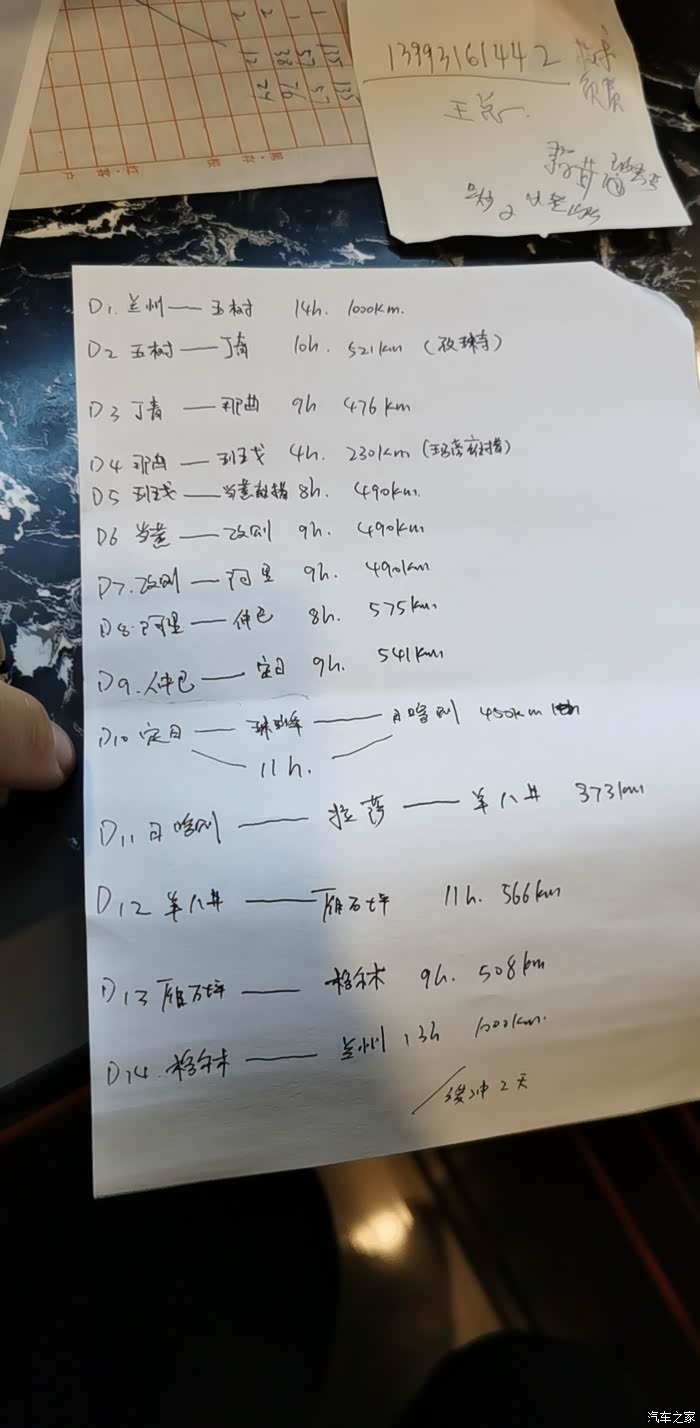 1 135 135
1 57 57
2 38 76
2 12 24
13993161442
王总
D1. 兰州——玉树 14h. 1000km.
D2 玉树——丁青 10h. 521km (孜珠寺)
D3 丁青——那曲 9h 476km
D4 那曲——班戈 4h. 230km
D5 班戈——当惹雍措 8h. 490km.
D6 当惹——改则 9h. 490km
D7. 改则——阿里 9h. 490km
D8. 阿里——仲巴 8h. 575km
D9. 仲巴——定日 9h. 541km
D10 定日——珠峰——日喀则 450km
11h.
D11 日喀则——拉萨——羊八井 373km
D12 羊八井——雁石坪 11h. 566km
D13 雁石坪——格尔木 9h. 508km
D14. 格尔木——兰州 13h 1000km.
缓冲2天
汽车之家